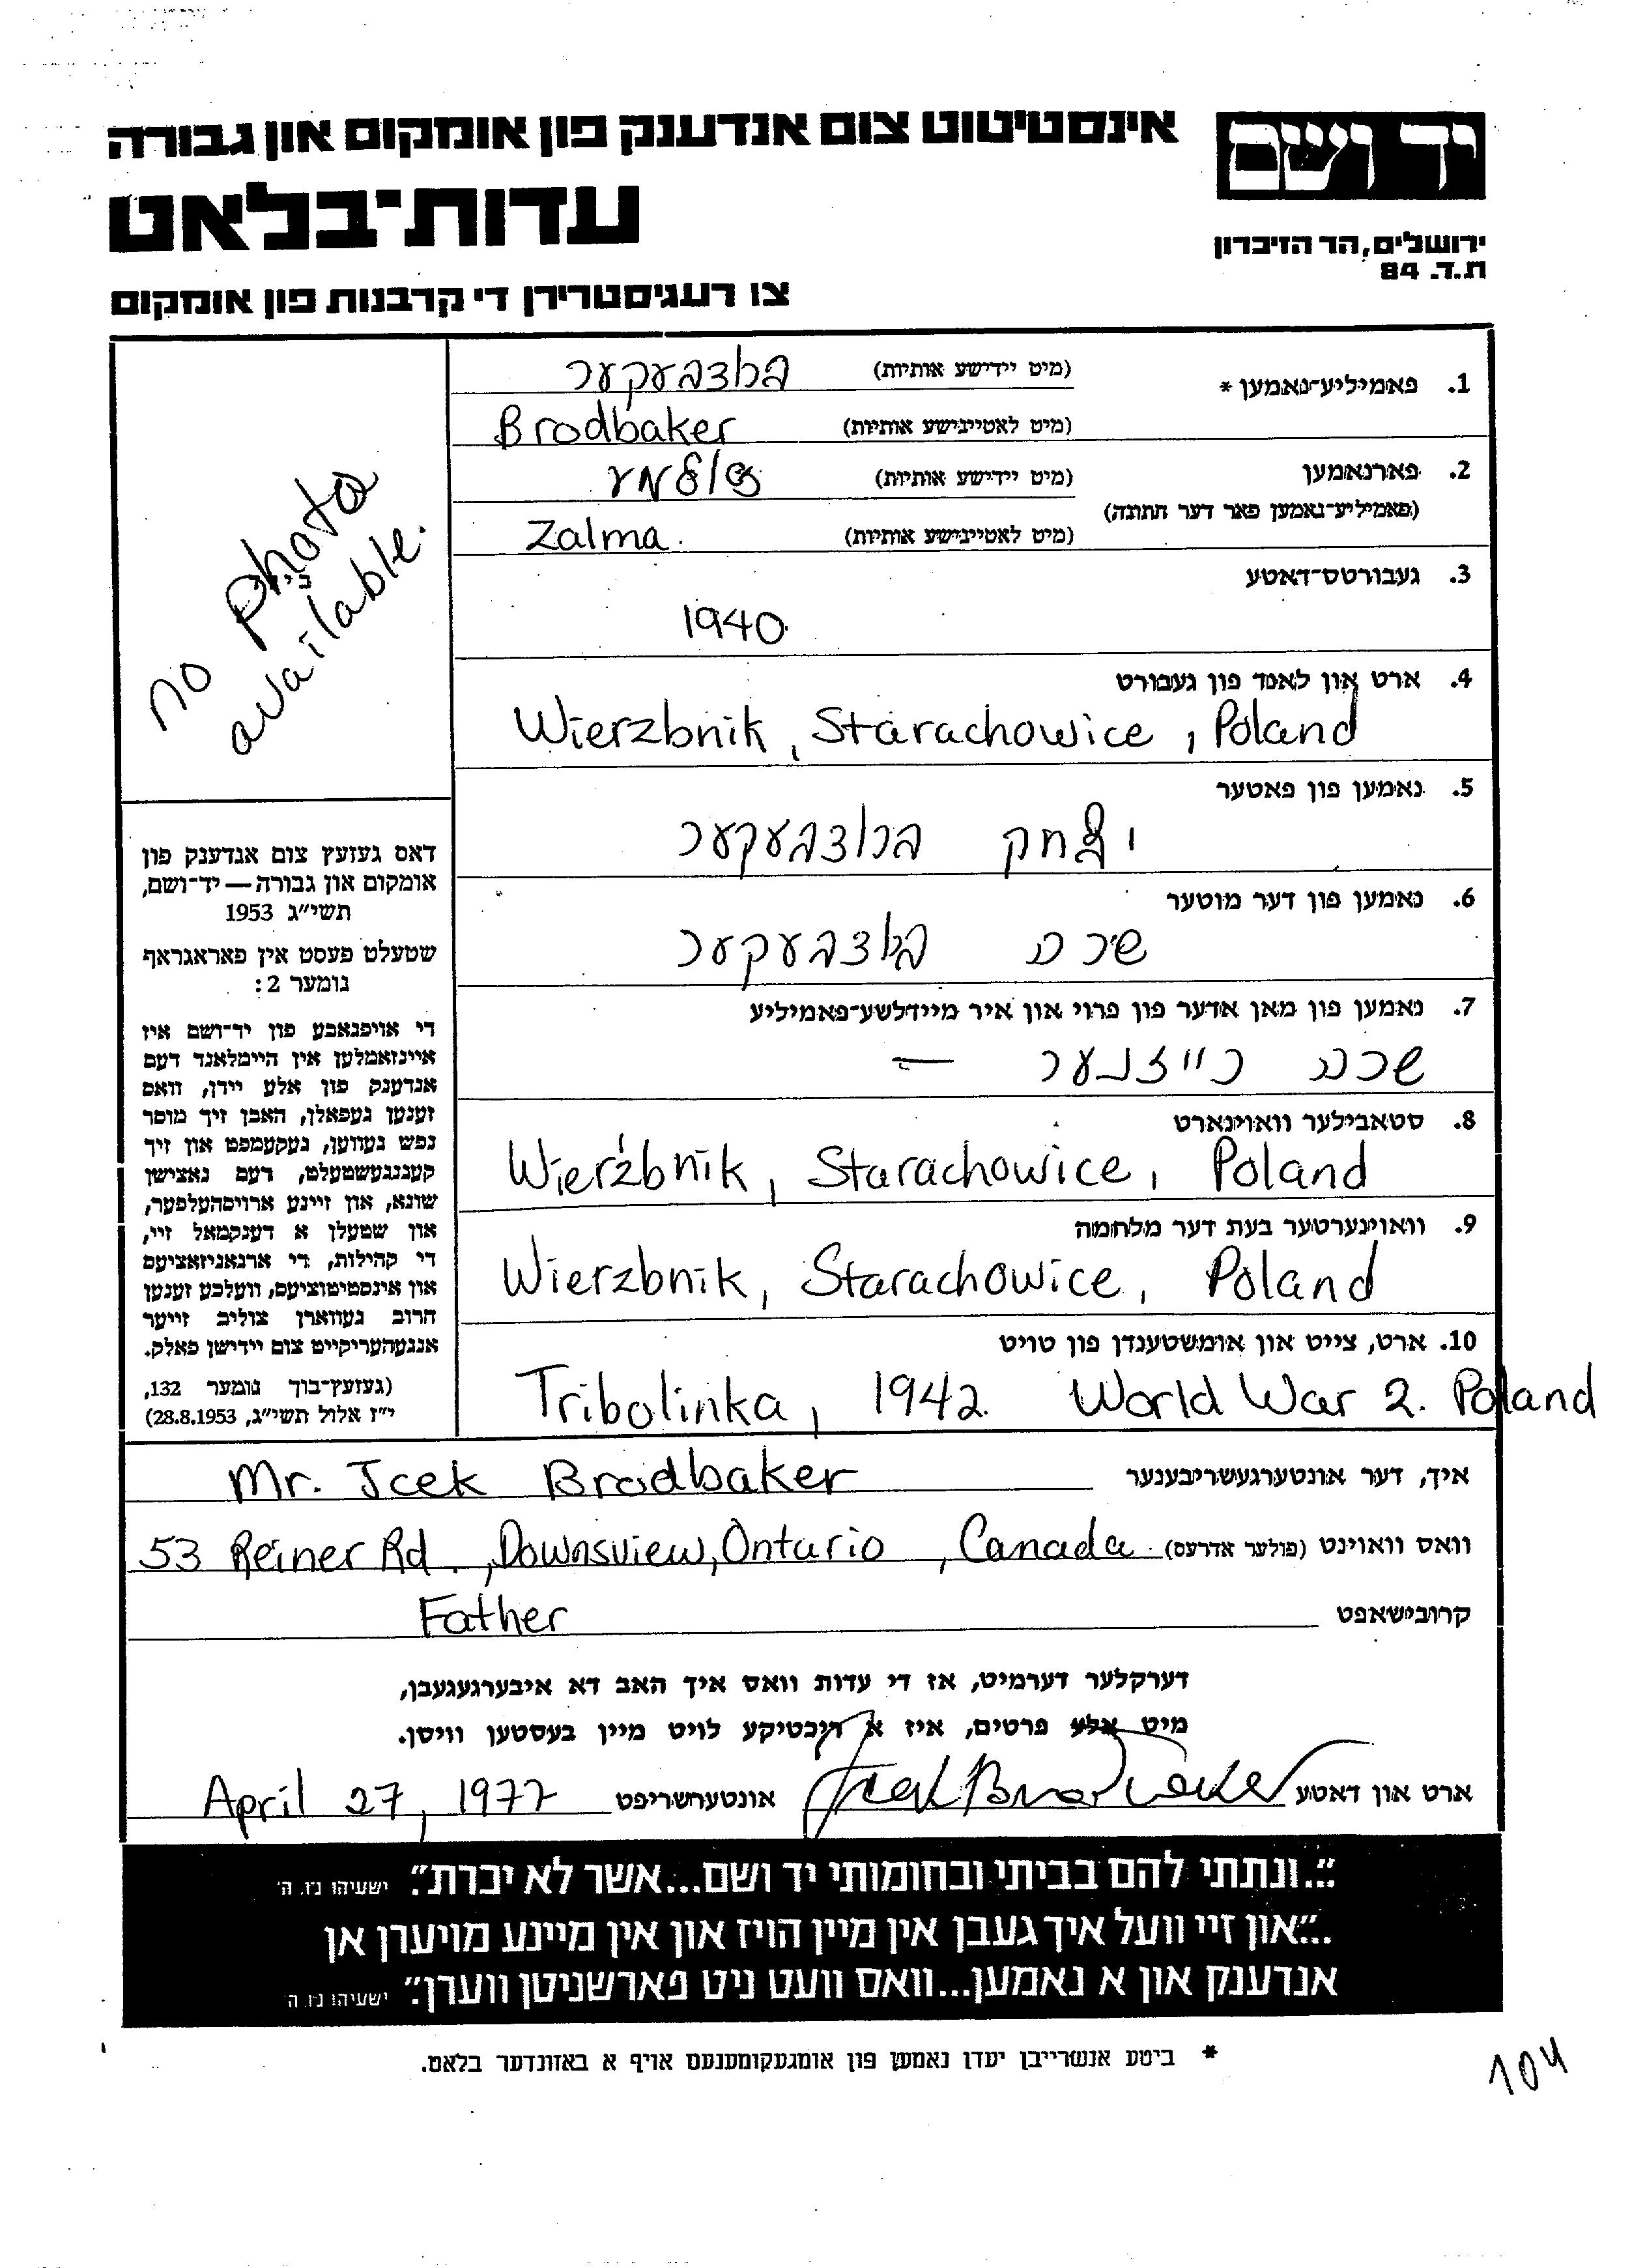 יד ושם
אינסטיטוט צום אנדענק פון אומקום און גבורה
עדות־בלאט
ירושלים, הר הזיכרון
ת.ד. 84
צו רעגיסטרירן די קרבנות פון אומקום
1. פאמיליע־נאמען *
(מיט יידישע אותיות)
(מיט לאטיינישע אותיות) Brodbaker
2. פארנאמען
(פאמיליע־נאמען פאר דער חתונה)
(מיט יידישע אותיות)
(מיט לאטיינישע אותיות) Zalma.
no photo
available.
בילד
3. געבורטס־דאטע
1940
4. ארט און לאנד פון געבורט
Wierzbnik, Starachowice, Poland
5. נאמען פון פאטער
יצחק ברודבעקער
6. נאמען פון דער מוטער
שרה
7. נאמען פון מאן אדער פון פרוי און איר מיידלשע־פאמיליע
שרה רייזנער —
8. סטאבילער וואוינארט
Wierzbnik, Starachowice, Poland
9. וואוינערטער בעת דער מלחמה
Wierzbnik, Starachowice, Poland
10. ארט, צייט און אומשטענדן פון טויט
Tribolinka, 1942. World War 2. Poland
דאס געזעץ צום אנדענק פון
אומקום און גבורה — יד־ושם,
תשי״ג 1953
שטעלט פעסט אין פאראגראף
נומער 2:
די אויפגאבע פון יד־ושם איז
איינזאמלען אין היימלאנד דעם
אנדענק פון אלע יידן, וואס
זענען געפאלן, האבן זיך מוסר
נפש געווען, געקעמפט און זיך
קעגנגעשטעלט, דעם נאצישן
שונא, און זיינע ארויסהעלפער,
און שטעלן א דענקמאל זיי,
די קהילות, די ארגאניזאציעס
און אינסטיטוציעס, וועלכע זענען
חרוב געווארן צוליב זייער
אנגעהעריקייט צום יידישן פאלק.
(געזעץ־בוך נומער 132,
י״ז אלול תשי״ג, 28.8.1953)
איך, דער אונטערגעשריבענער Mr. Icek Brodbaker
וואס וואוינט (פולער אדרעס) 53 Reiner Rd., Downsview, Ontario, Canada.
קרובישאפט Father
דערקלער דערמיט, אז די עדות וואס איך האב דא איבערגעגעבן,
מיט אלע פרטים, איז א ריכטיקע לויט מיין בעסטען וויסן.
ארט און דאטע אונטערשריפט April 27, 1977
״...ונתתי להם בביתי ובחומותי יד ושם...אשר לא יכרת״. ישעיהו נ״ו, ה׳
...״און זיי וועל איך געבן אין מיין הויז און אין מיינע מויערן אן
אנדענק און א נאמען...וואס וועט ניט פארשניטן ווערן״. ישעיהו נ״ו, ה׳
* ביטע אנשרייבן יעדן נאמען פון אומגעקומענעם אויף א באזונדער בלאט.
104